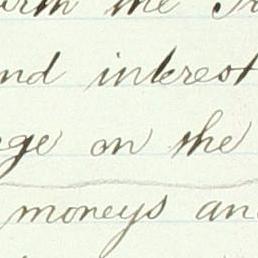 the
nd interest
ge on the
moneys an